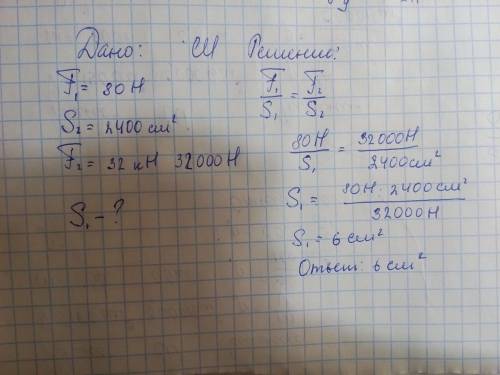 Дано: СИ Решение:
F₁ = 80 Н
S₂ = 2400 см²
F₂ = 32 кН 32000 Н
S₁ - ?
F₁/S₁ = F₂/S₂
80Н/S₁ = 32000Н/2400см²
S₁ = 80Н · 2400 см²/32000Н
S₁ = 6 см²
Ответ: 6 см²